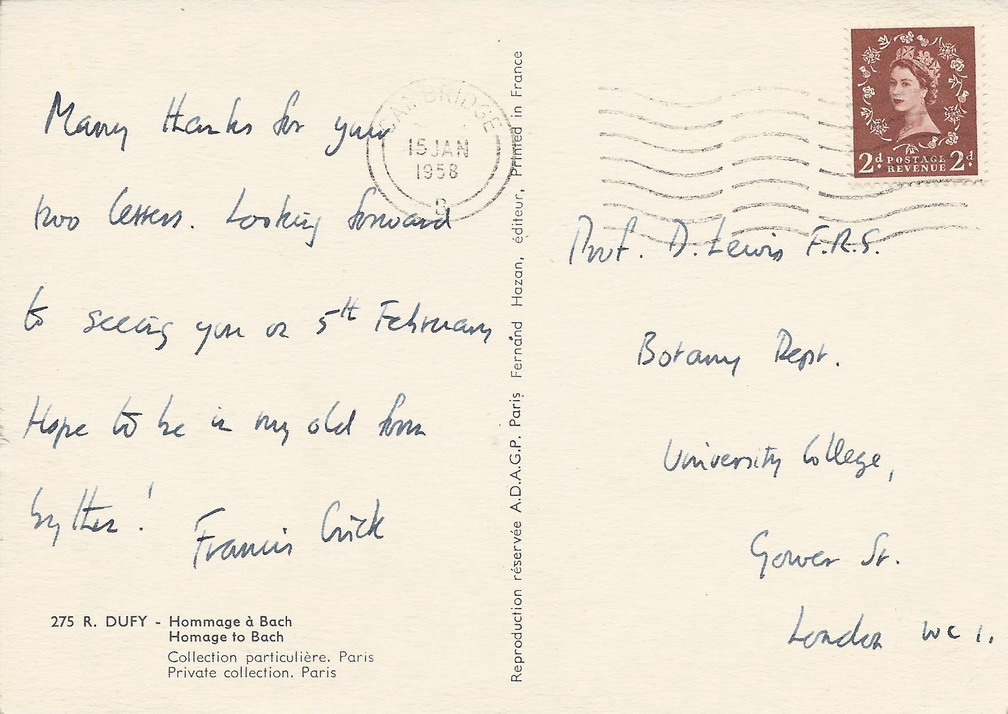 Many thanks for your
two letters. Looking forward
to seeing you on 5th February.
Hope to be in my old form
by then!
Francis Crick
275 R. DUFY - Hommage à Bach
Homage to Bach
Collection particulière. Paris
Private collection. Paris
Reproduction réservée A.D.A.G.P. Paris Fernand Hazan, éditeur, Printed in France
CAMBRIDGE
15 JAN
1958
B
2d POSTAGE REVENUE 2d
Prof. D. Lewis F.R.S.
Botany Dept.
University College,
Gower St.
London WC1.